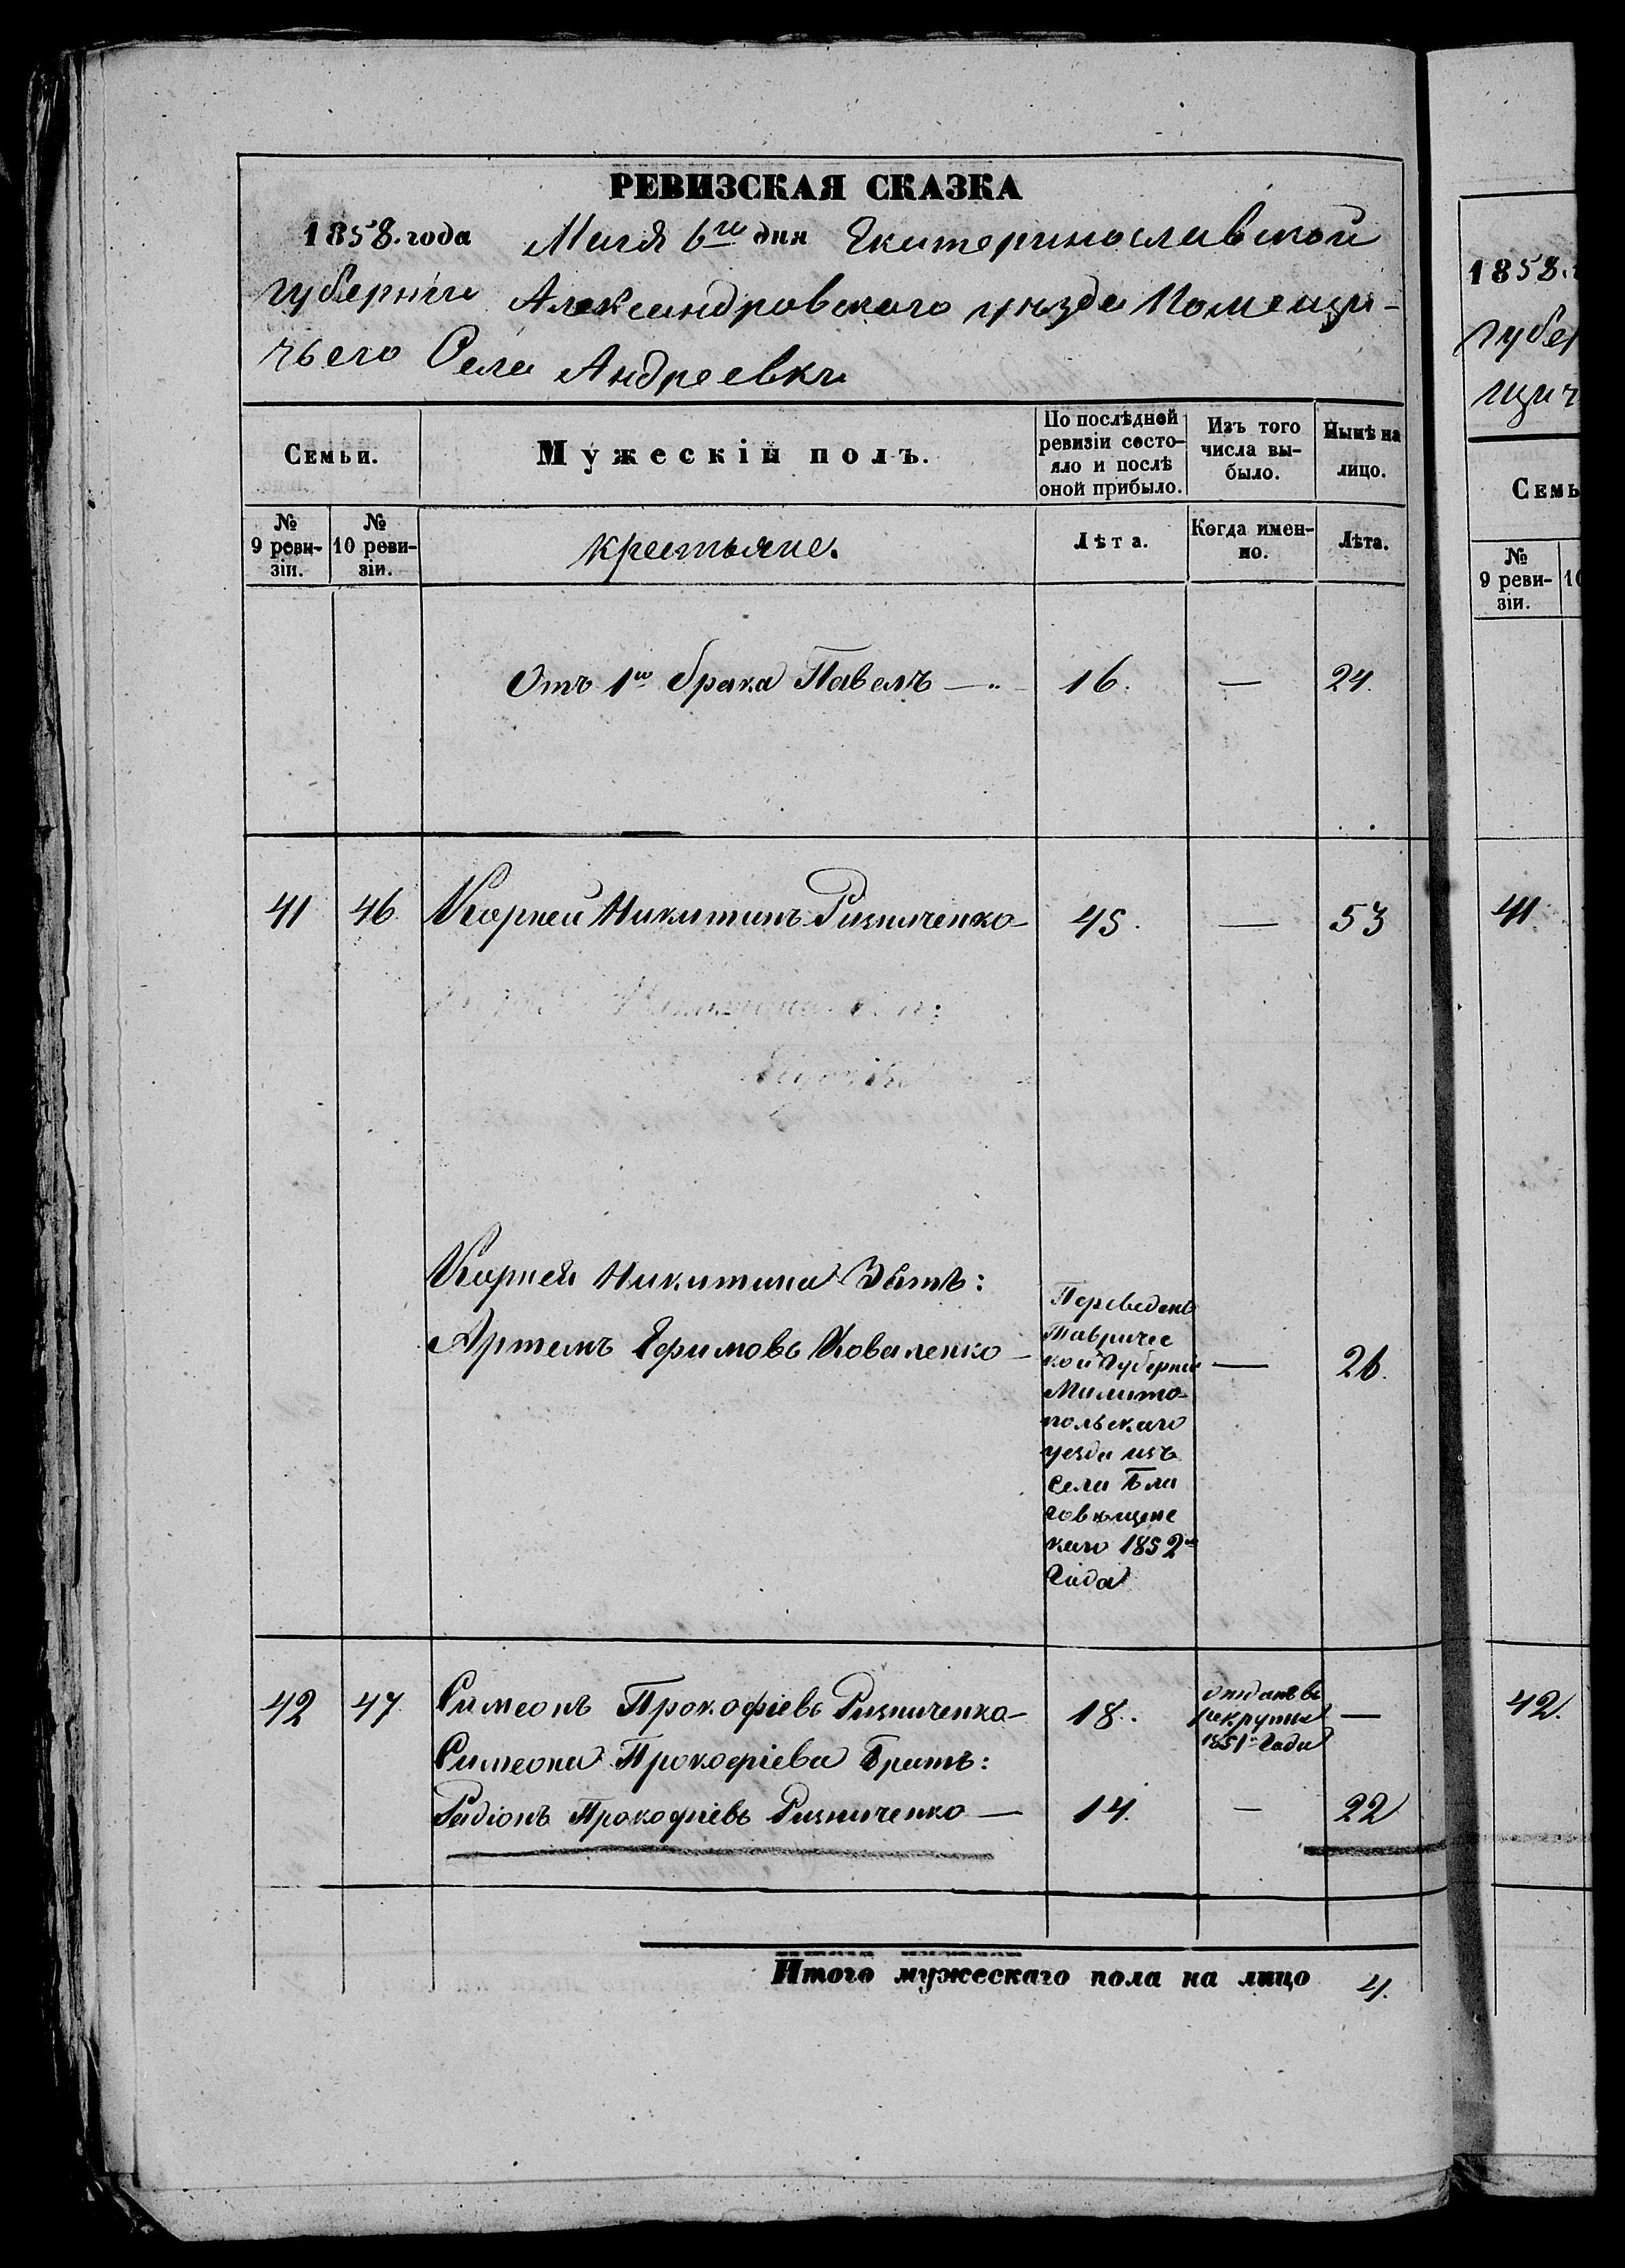 РЕВИЗСКАЯ СКАЗКА
1858 года Мая 6го дня Екатеринославской
губерніи Александровского уезда Помещи-
чьего Села Андреевки
Семьи.
Мужескій полъ.
По послѣдней ревизіи состо-
яло и послѣ
оной прибыло.
Изъ того
числа вы-
было.
Нынѣ на
лицо.
№
9 реви-
зіи.
№
10 реви-
зіи.
крестьяне.
Лѣта.
Когда имен-
но.
Лѣта.
Отъ 1го брака Павелъ — 16. — 24.
41 46 Корней Никитинъ Ризниченко — 45. — 53
Корнея Никитина Зять:
Артемъ Ефимовъ Коваленко — — 26.
Переведенъ
Тавричес
кой Губерніи
Мелито-
польскаго
уезда изъ
села Бла
говѣщенс
каго 1852го
Года
42 47 Симеонъ Прокофіевъ Ризниченко — 18. —
отданъ въ
рекруты
1851го Года
Симеона Прокофіева Братъ:
Радіонъ Прокофіевъ Ризниченко — 14. — 22
Итого мужескаго пола на лицо 4.
1858.
губер
щич
Семь
№
9 реви-
зіи.
10
41
42.